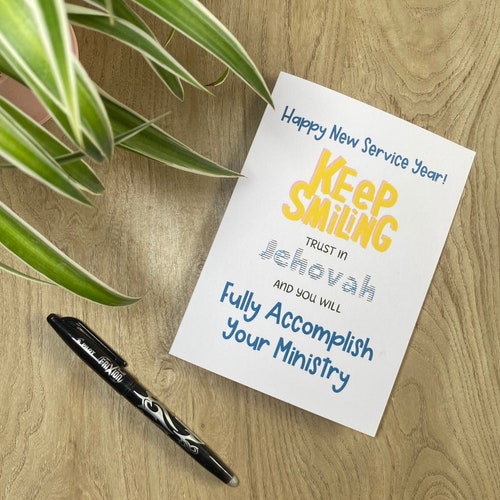 Happy New Service Year!
KEEP
SMILING
TRUST IN
Jehovah
AND YOU WILL
Fully Accomplish
your Ministry
PILOT FRIXION